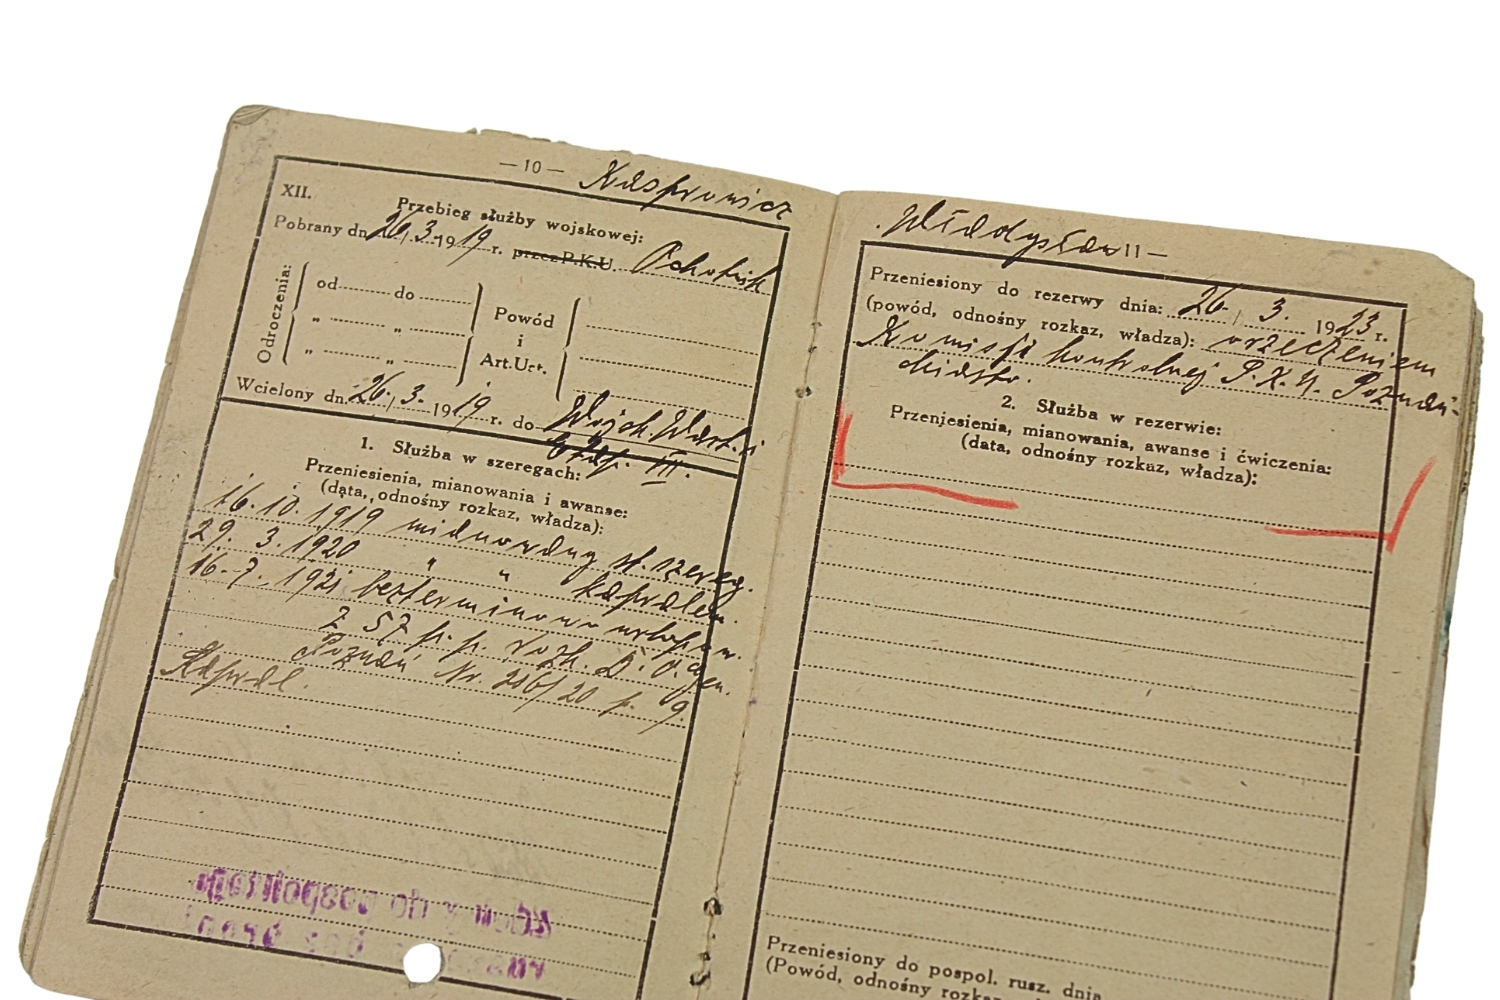 — 10 — Kasprowicz
XII.
Przebieg służby wojskowej:
Pobrany dn. 26/3. 1919 r. przez P.K.U. Ochotnik
Odroczenia:
od do
„ „
„ „
Powód
i
Art.Ust.
Wcielony dn. 26./3. 1919 r. do Wojsk. Wart. i
III.
1. Służba w szeregach:
Przeniesienia, mianowania i awanse:
(data, odnośny rozkaz, władza):
16.10.1919 mianowany st. szereg.
29. 3. 1920 „ „ kapralem.
16.7. 1921 bezterminowo urlopow.
z 57 p.p. rozk. D. O. Gen.
Poznań Nr. 206/20 p. 9.
Kapral.
Władysław 11 —
Przeniesiony do rezerwy dnia: 26./3. 1923 r.
(powód, odnośny rozkaz, władza): orzeczeniem
Komisji kontrolnej P.K.U. Poznań-
Miasto.
2. Służba w rezerwie:
Przeniesienia, mianowania, awanse i ćwiczenia:
(data, odnośny rozkaz, władza):
Przeniesiony do pospol. rusz. dnia
(Powód, odnośny rozkaz